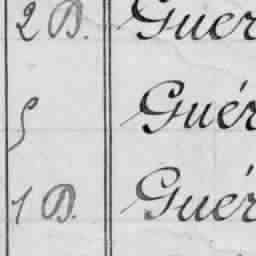 2 B. Guér
5 Guér
1 B. Guér